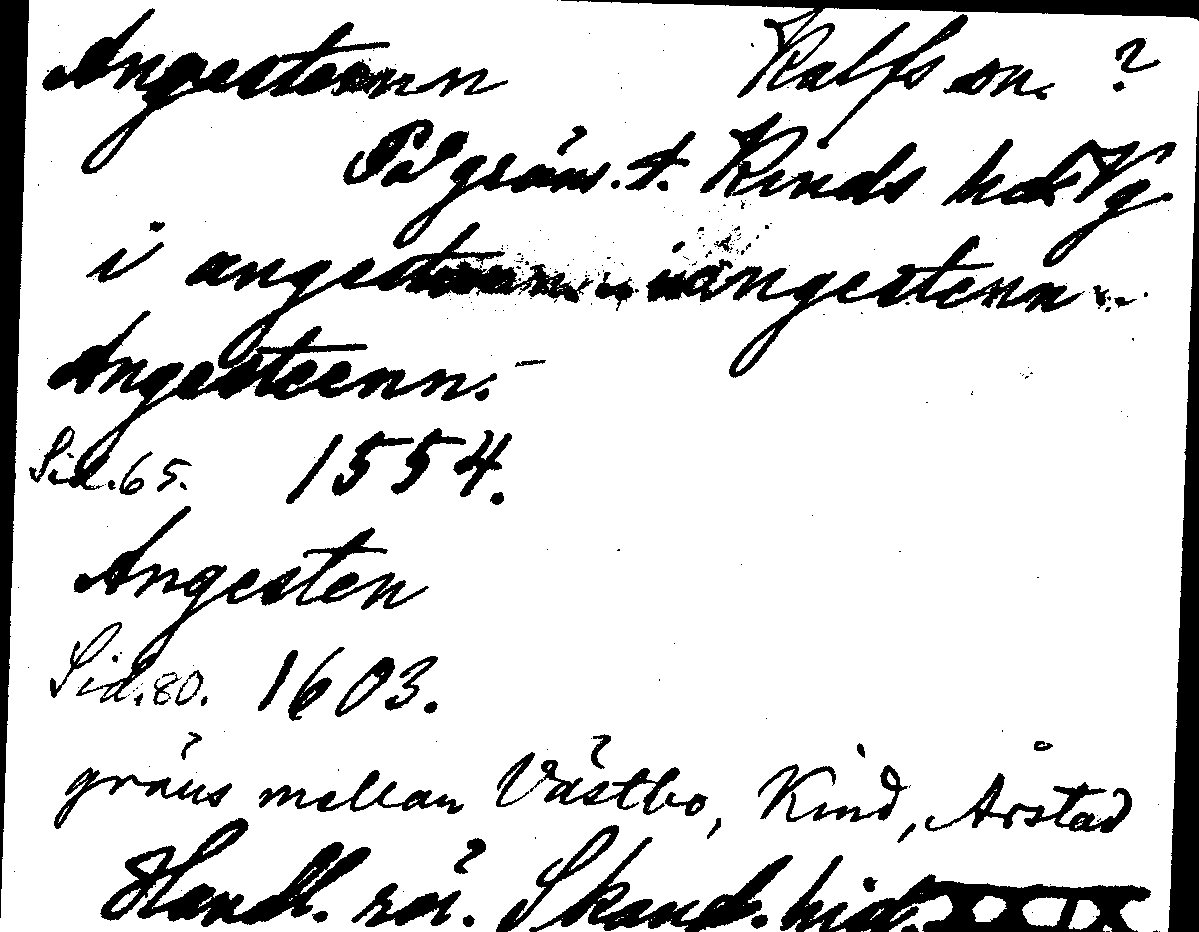 Angesteenn Kalfs sn. ?
På gräns. t. Kinds hd. Vg.
i angesteenn i angestenn
Angesteenn.–
Sid. 65. 1554.
Angesten
Sid. 80. 1603.
gräns mellan Västbo, Kind, Årstad
Handl. rör. Skand. hist. XXIX